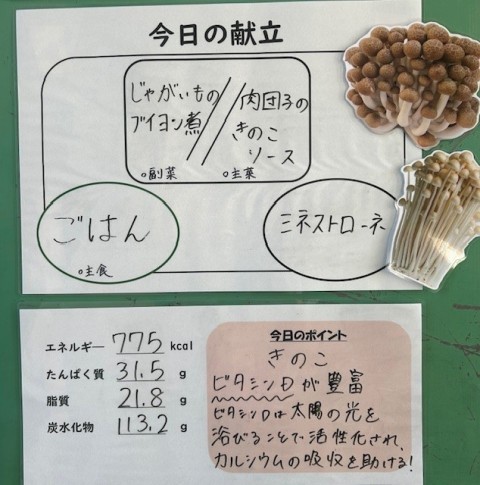 今日の献立
じゃがいもの
ブイヨン煮
○副菜
肉団子の
きのこ
ソース
○主菜
ごはん
○主食
ミネストローネ
エネルギー 775 kcal
たんぱく質 31.5 g
脂質 21.8 g
炭水化物 113.2 g
今日のポイント
きのこ
ビタミンDが豊富
ビタミンDは太陽の光を
浴びることで活性化され、
カルシウムの吸収を助ける!